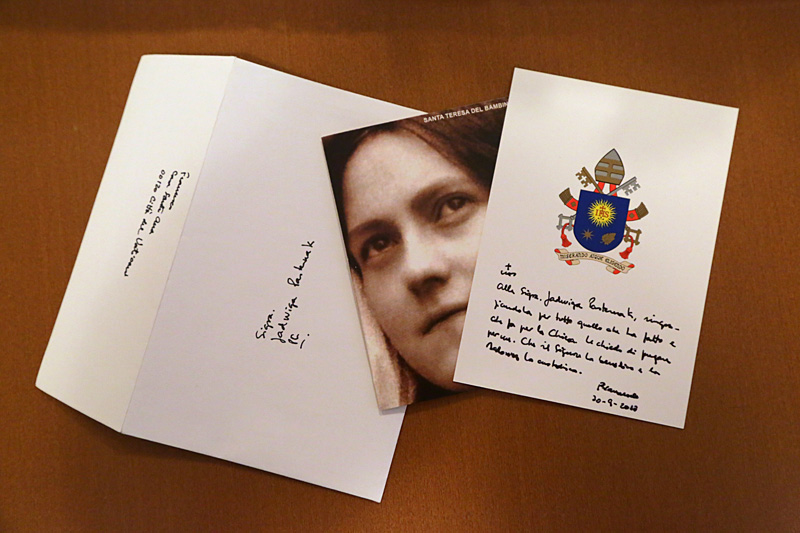 Francesco
Casa Santa Marta
00120 Città del Vaticano
Sigra.
Jadwiga
SANTA TERESA DEL BAMBIN
IHS
MISERANDO ATQUE ELIGENDO
Alla Sigra. Jadwiga ringra-
ziandola per tutto quello che ha fatto e
che fa per la Chiesa. Le chiedo di pregare
per me. Che il Signore la benedica e la
Madonna la custodisca.
Francesco
20-9-2013